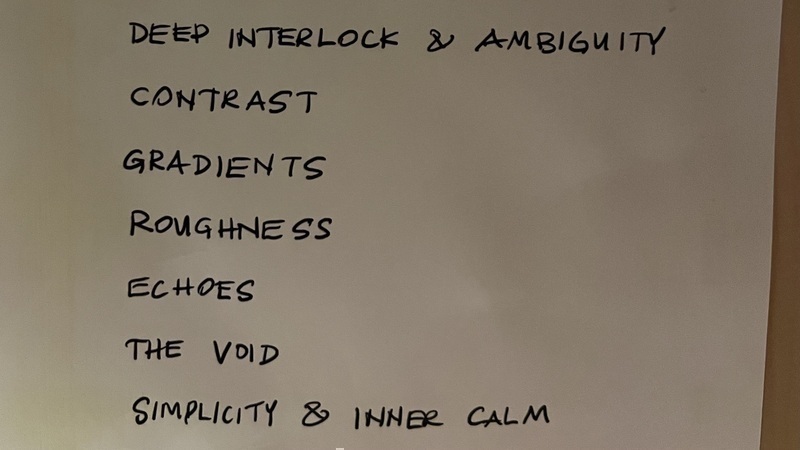 DEEP INTERLOCK & AMBIGUITY
CONTRAST
GRADIENTS
ROUGHNESS
ECHOES
THE VOID
SIMPLICITY & INNER CALM